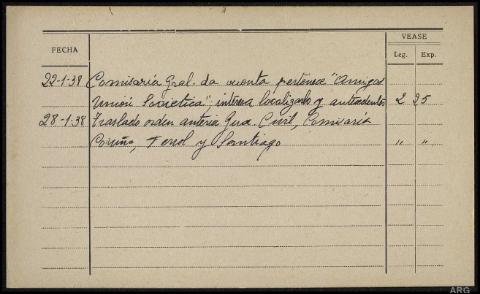 FECHA
VEASE
Leg. Exp.
22-1-38 Comisaria Gral. da cuenta pertenece "Amigos
Unión Sovietica"; interesa localizado y antecedentes 2 25
28-1-38 Traslado orden anterior Gua. Civil, Comisaria
Coruña, Ferrol y Santiago " "
ARG